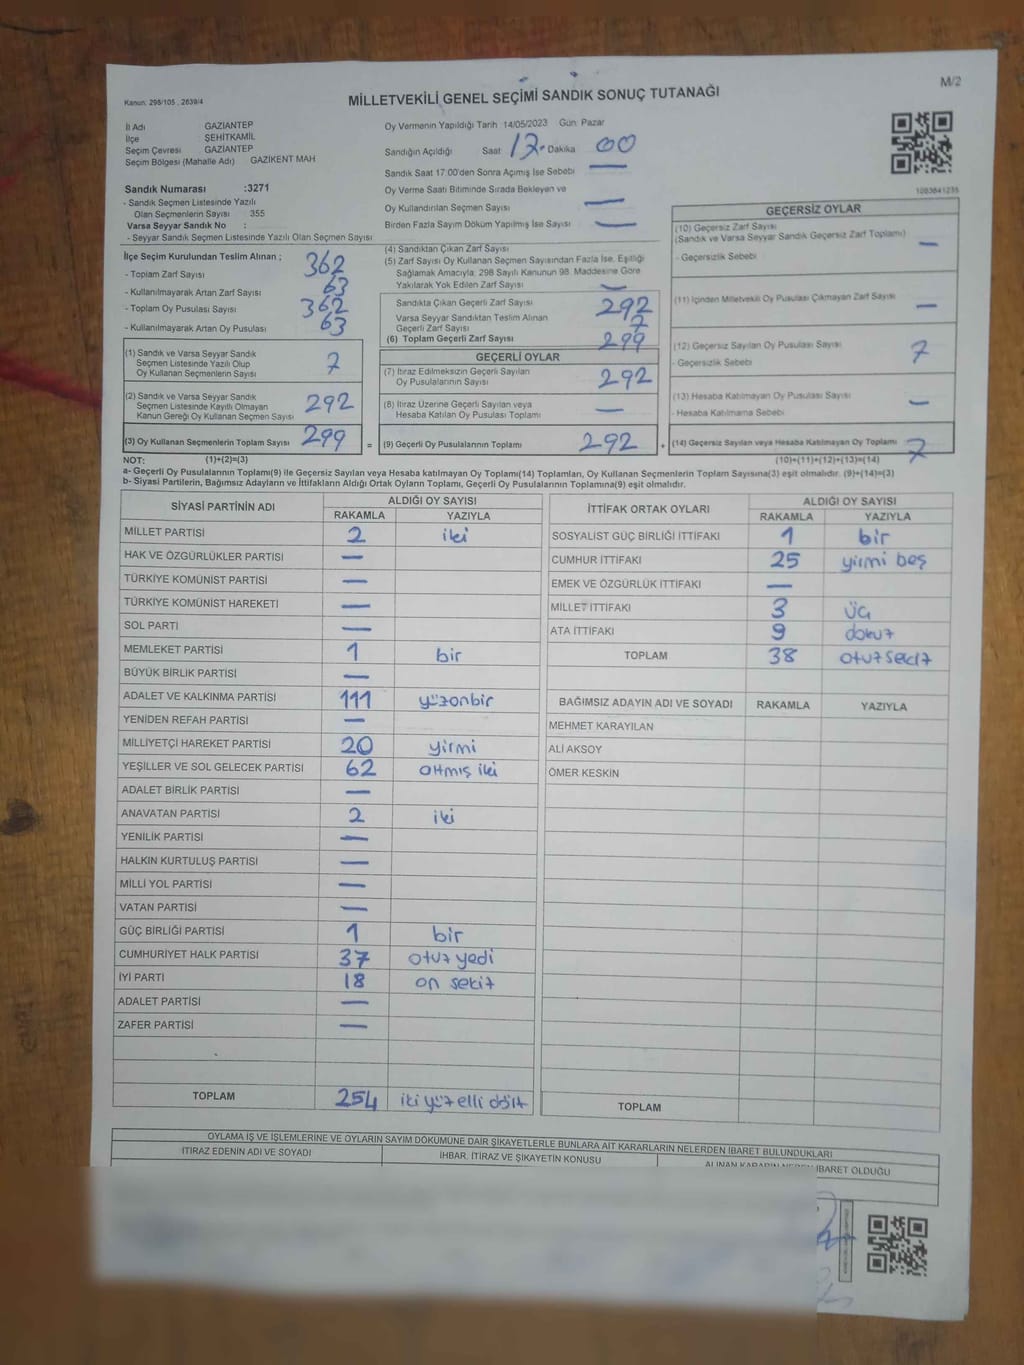 M/2
Kanun: 298/105 , 2839/4
MİLLETVEKİLİ GENEL SEÇİMİ SANDIK SONUÇ TUTANAĞI
İl Adı GAZİANTEP
İlçe ŞEHİTKAMİL
Seçim Çevresi GAZİANTEP
Seçim Bölgesi (Mahalle Adı) GAZİKENT MAH
Oy Vermenin Yapıldığı Tarih 14/05/2023 Gün: Pazar
Sandığın Açıldığı Saat 17. Dakika 00
Sandık Saat 17:00'den Sonra Açımış İse Sebebi —
Oy Verme Saati Bitiminde Sırada Bekleyen ve
Oy Kullandırılan Seçmen Sayısı —
Birden Fazla Sayım Döküm Yapılmış İse Sayısı —
Sandık Numarası :3271
- Sandık Seçmen Listesinde Yazılı
Olan Seçmenlerin Sayısı 355
Varsa Seyyar Sandık No :
- Seyyar Sandık Seçmen Listesinde Yazılı Olan Seçmen Sayısı
İlçe Seçim Kurulundan Teslim Alınan ;
- Toplam Zarf Sayısı 362
- Kullanılmayarak Artan Zarf Sayısı 63
- Toplam Oy Pusulası Sayısı 362
- Kullanılmayarak Artan Oy Pusulası 63
(1) Sandık ve Varsa Seyyar Sandık
Seçmen Listesinde Yazılı Olup
Oy Kullanan Seçmenlerin Sayısı 7
(2) Sandık ve Varsa Seyyar Sandık
Seçmen Listesinde Kayıtlı Olmayan
Kanun Gereği Oy Kullanan Seçmen Sayısı 292
(3) Oy Kullanan Seçmenlerin Toplam Sayısı 299
(4) Sandıktan Çıkan Zarf Sayısı
(5) Zarf Sayısı Oy Kullanan Seçmen Sayısından Fazla İse, Eşitliği
Sağlamak Amacıyla, 298 Sayılı Kanunun 98. Maddesine Göre
Yakılarak Yok Edilen Zarf Sayısı —
Sandıkta Çıkan Geçerli Zarf Sayısı 292
Varsa Seyyar Sandıktan Teslim Alınan
Geçerli Zarf Sayısı 7
(6) Toplam Geçerli Zarf Sayısı 299
GEÇERLİ OYLAR
(7) İtiraz Edilmeksizin Geçerli Sayılan
Oy Pusulalarının Sayısı 292
(8) İtiraz Üzerine Geçerli Sayılan veya
Hesaba Katılan Oy Pusulası Toplamı —
= (9) Geçerli Oy Pusulalarının Toplamı 292 +
1083841235
GEÇERSİZ OYLAR
(10) Geçersiz Zarf Sayısı
(Sandık ve Varsa Seyyar Sandık Geçersiz Zarf Toplamı) —
- Geçersizlik Sebebi
(11) İçinden Milletvekili Oy Pusulası Çıkmayan Zarf Sayısı —
(12) Geçersiz Sayılan Oy Pusulası Sayısı 7
- Geçersizlik Sebebi
(13) Hesaba Katılmayan Oy Pusulası Sayısı —
- Hesaba Katılmama Sebebi
(14) Geçersiz Sayılan veya Hesaba Katılmayan Oy Toplamı 7
NOT: (1)+(2)=(3) (10)+(11)+(12)+(13)=(14)
a- Geçerli Oy Pusulalarının Toplamı(9) ile Geçersiz Sayılan veya Hesaba katılmayan Oy Toplamı(14) Toplamları, Oy Kullanan Seçmenlerin Toplam Sayısına(3) eşit olmalıdır. (9)+(14)=(3)
b- Siyasi Partilerin, Bağımsız Adayların ve İttifakların Aldığı Ortak Oyların Toplamı, Geçerli Oy Pusulalarının Toplamına(9) eşit olmalıdır.
SİYASİ PARTİNİN ADI ALDIĞI OY SAYISI
RAKAMLA YAZIYLA
MİLLET PARTİSİ 2 iki
HAK VE ÖZGÜRLÜKLER PARTİSİ —
TÜRKİYE KOMÜNİST PARTİSİ —
TÜRKİYE KOMÜNİST HAREKETİ —
SOL PARTİ —
MEMLEKET PARTİSİ 1 bir
BÜYÜK BİRLİK PARTİSİ —
ADALET VE KALKINMA PARTİSİ 111 yüzonbir
YENİDEN REFAH PARTİSİ —
MİLLİYETÇİ HAREKET PARTİSİ 20 yirmi
YEŞİLLER VE SOL GELECEK PARTİSİ 62 altmış iki
ADALET BİRLİK PARTİSİ —
ANAVATAN PARTİSİ 2 iki
YENİLİK PARTİSİ —
HALKIN KURTULUŞ PARTİSİ —
MİLLİ YOL PARTİSİ —
VATAN PARTİSİ —
GÜÇ BİRLİĞİ PARTİSİ 1 bir
CUMHURİYET HALK PARTİSİ 37 otuz yedi
İYİ PARTİ 18 on sekiz
ADALET PARTİSİ —
ZAFER PARTİSİ —
TOPLAM 254 iki yüz elli dört
İTTİFAK ORTAK OYLARI ALDIĞI OY SAYISI
RAKAMLA YAZIYLA
SOSYALIST GÜÇ BİRLİĞİ İTTİFAKI 1 bir
CUMHUR İTTİFAKI 25 yirmi beş
EMEK VE ÖZGÜRLÜK İTTİFAKI —
MİLLET İTTİFAKI 3 üç
ATA İTTİFAKI 9 dokuz
TOPLAM 38 otuz sekiz
BAĞIMSIZ ADAYIN ADI VE SOYADI RAKAMLA YAZIYLA
MEHMET KARAYILAN
ALİ AKSOY
ÖMER KESKİN
TOPLAM
OYLAMA İŞ VE İŞLEMLERİNE VE OYLARIN SAYIM DÖKÜMÜNE DAİR ŞİKAYETLERLE BUNLARA AİT KARARLARIN NELERDEN İBARET BULUNDUKLARI
İTİRAZ EDENİN ADI VE SOYADI
İHBAR, İTİRAZ VE ŞİKAYETİN KONUSU
ALINAN KARARIN NEDEN İBARET OLDUĞU